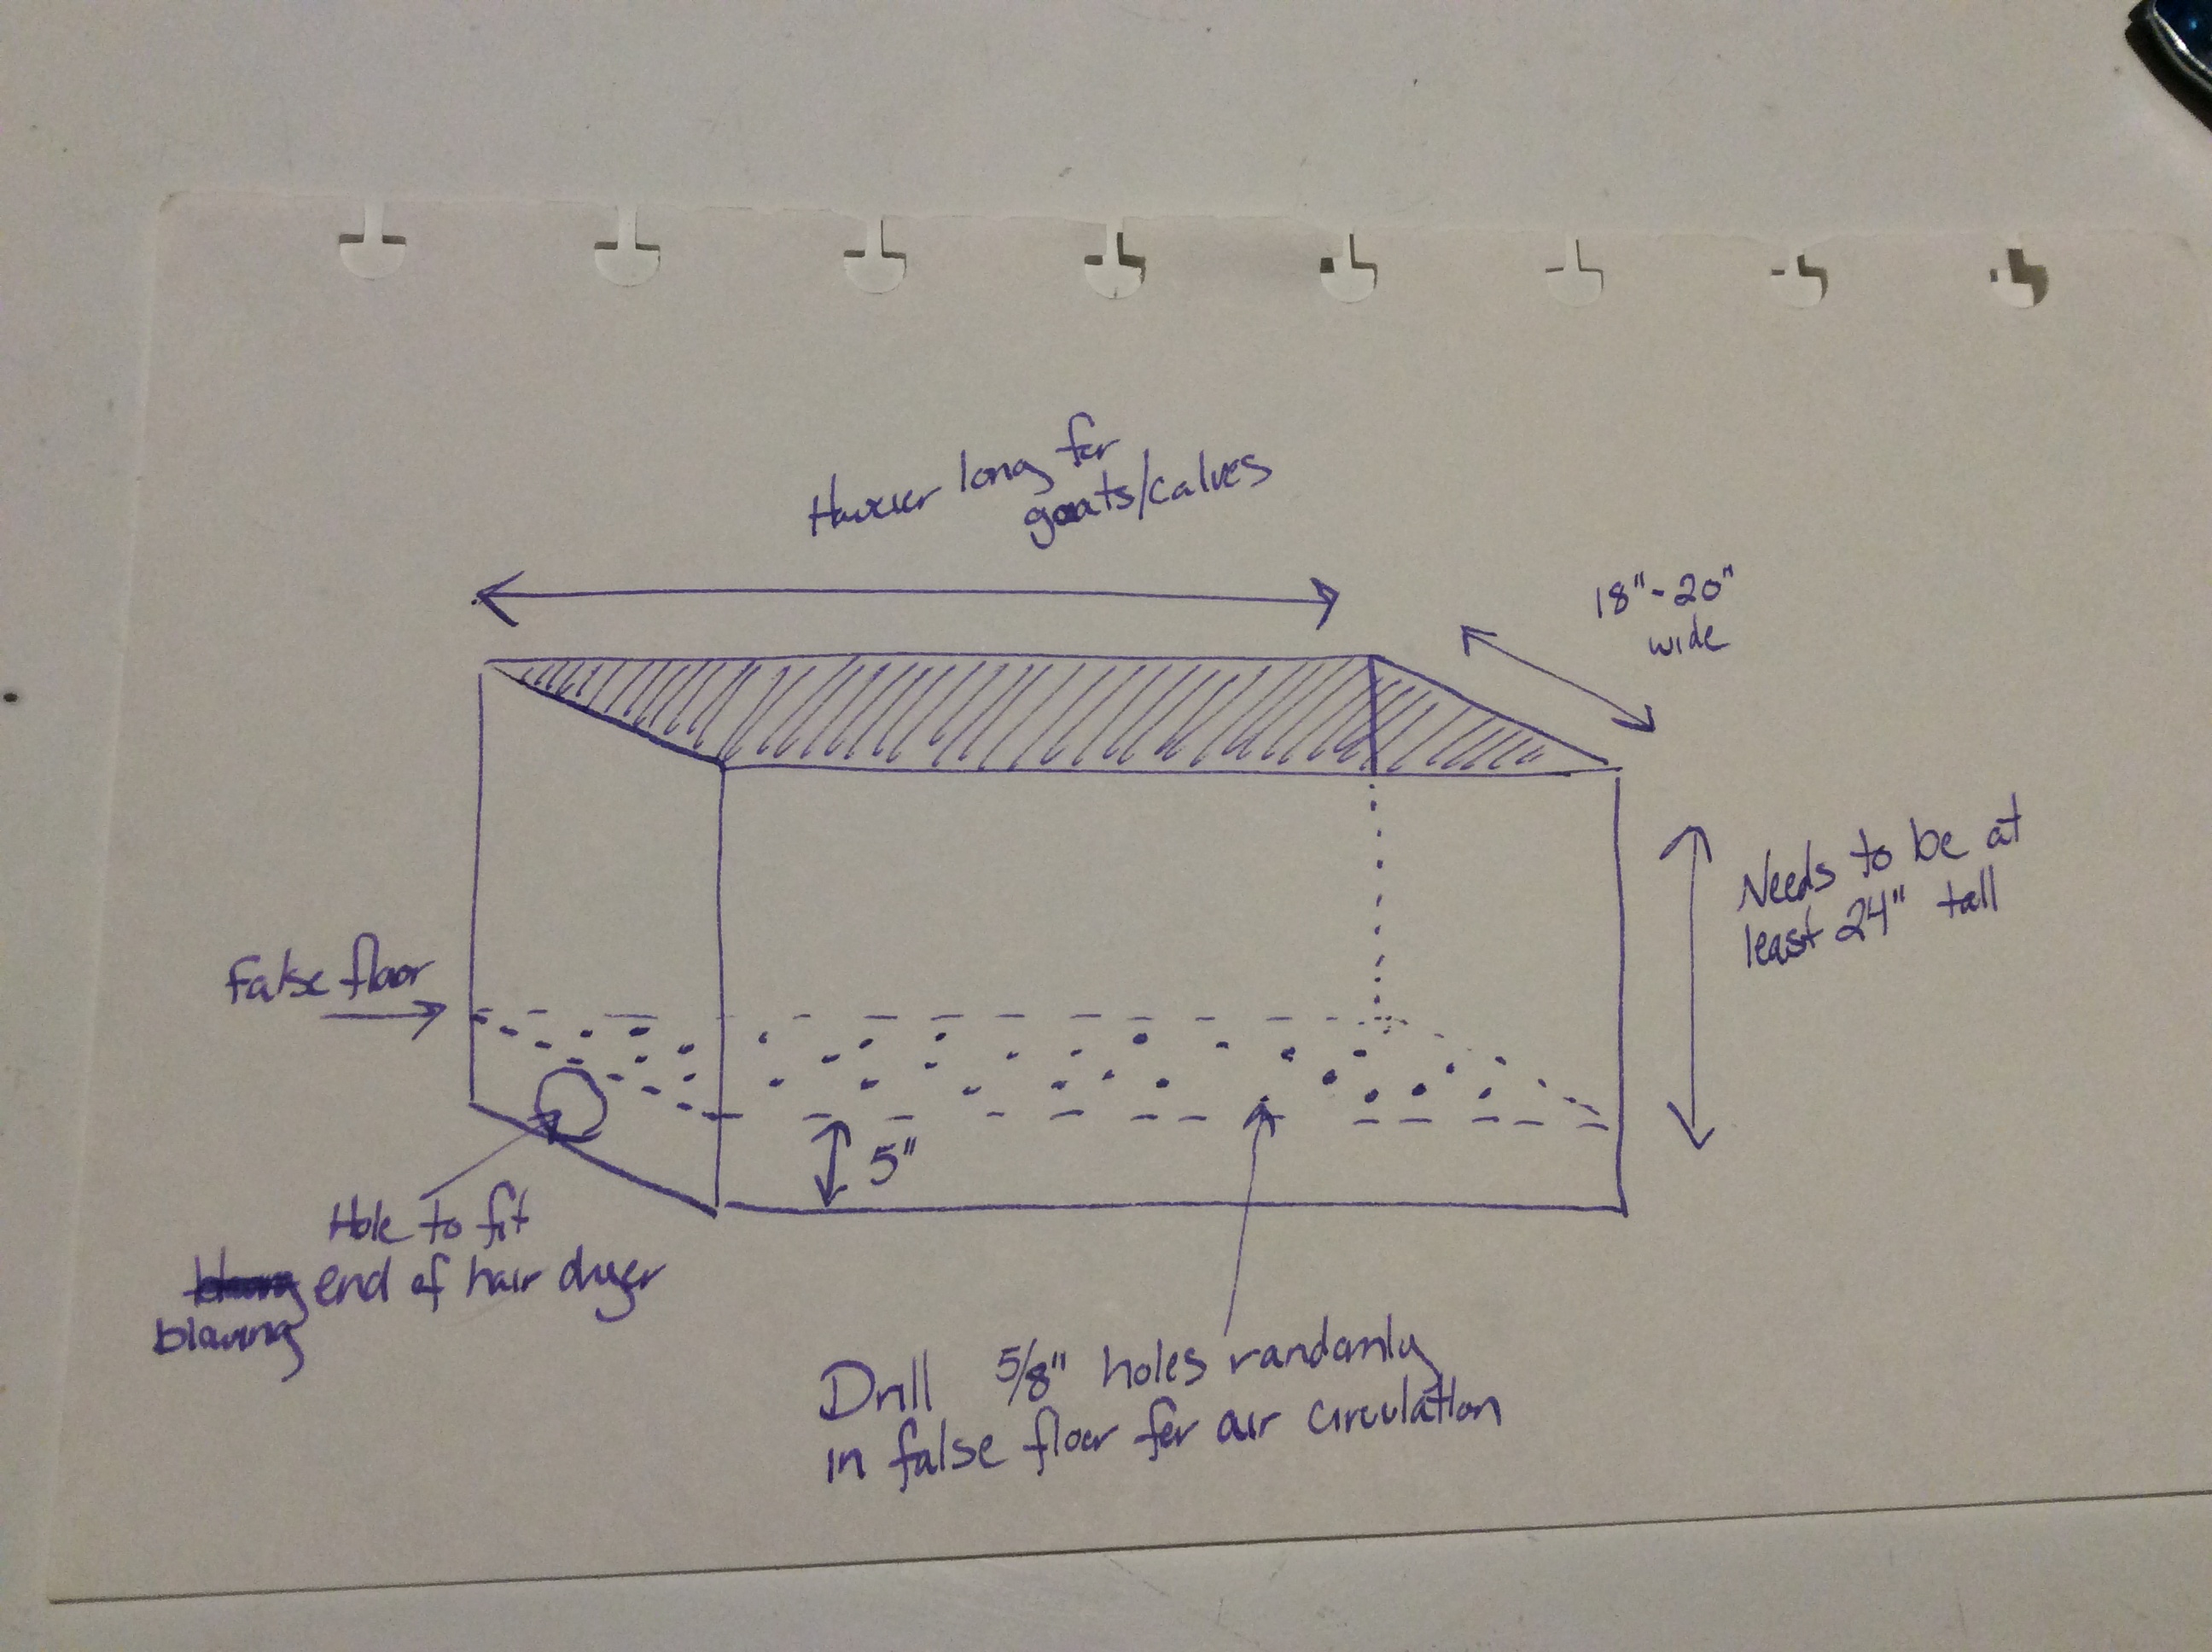 However long for
goats/calves
18"-20"
wide
Needs to be at
least 24" tall
False floor
5"
Hole to fit
end of hair dryer
blowing
Drill 5/8" holes randomly
in false floor for air circulation